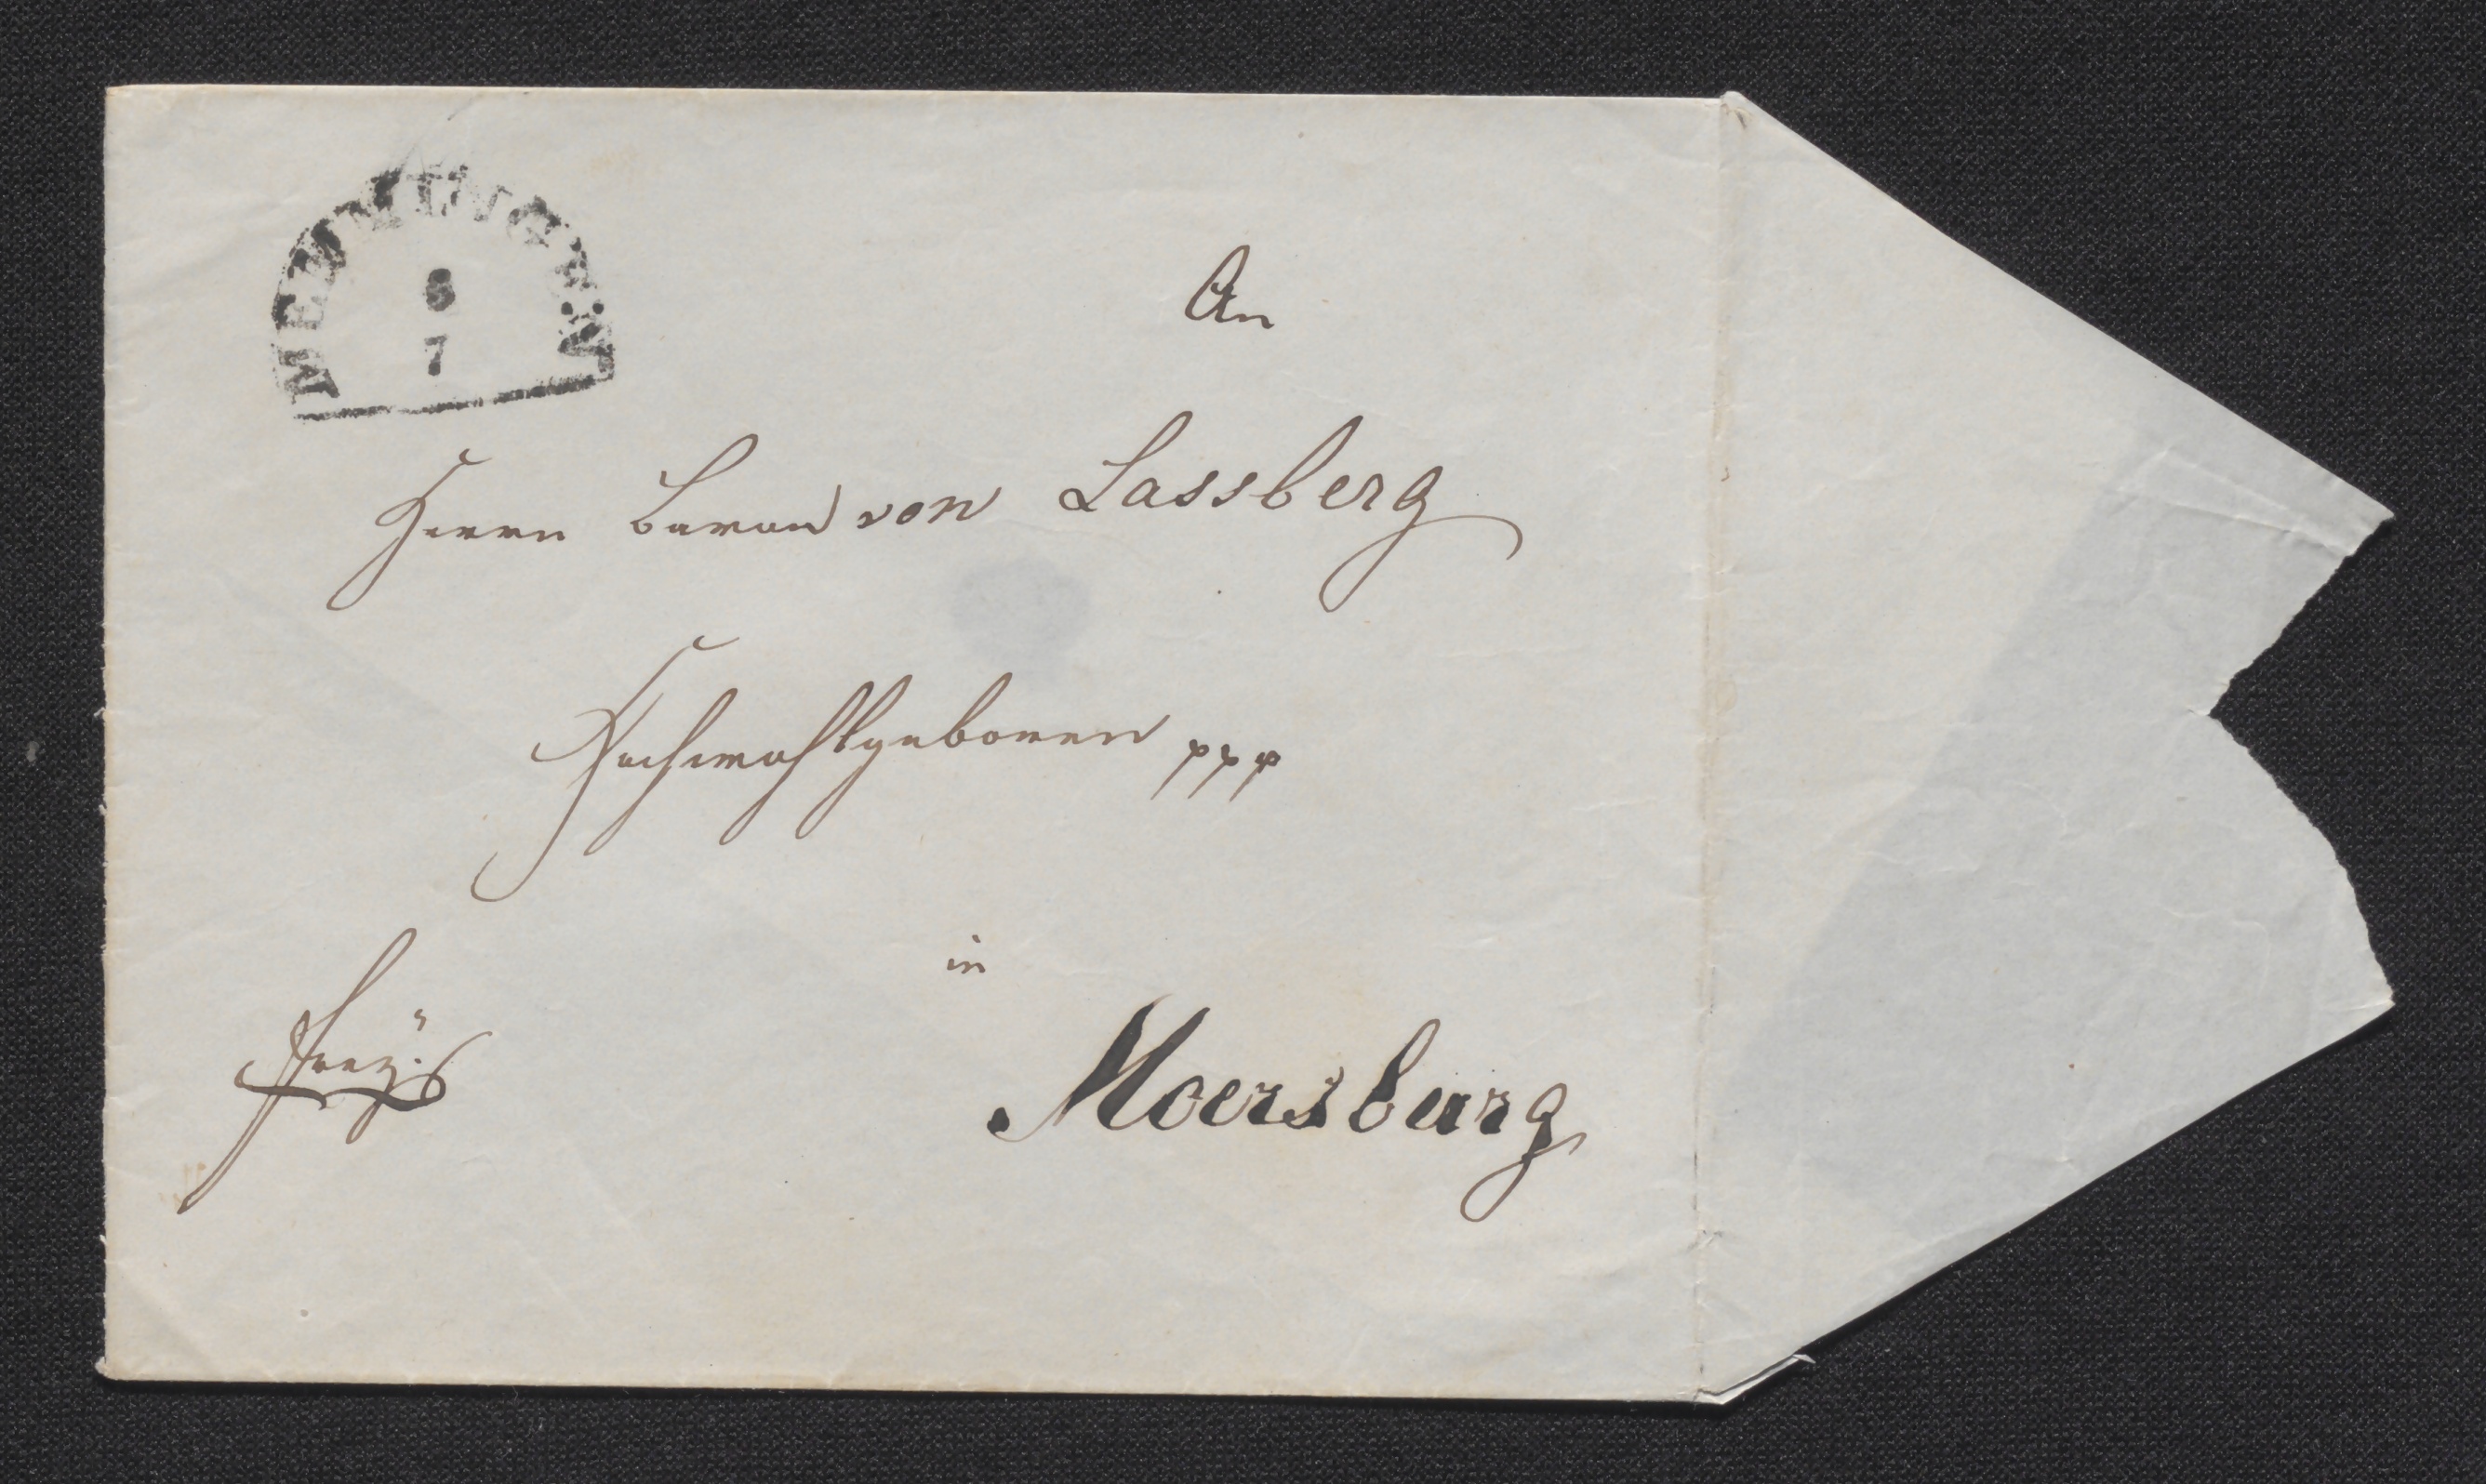 MEMMINGEN
6
7
An
Herrn Baron von Lassberg
Hochwohlgeboren ppp
in
frey.
Moersburg